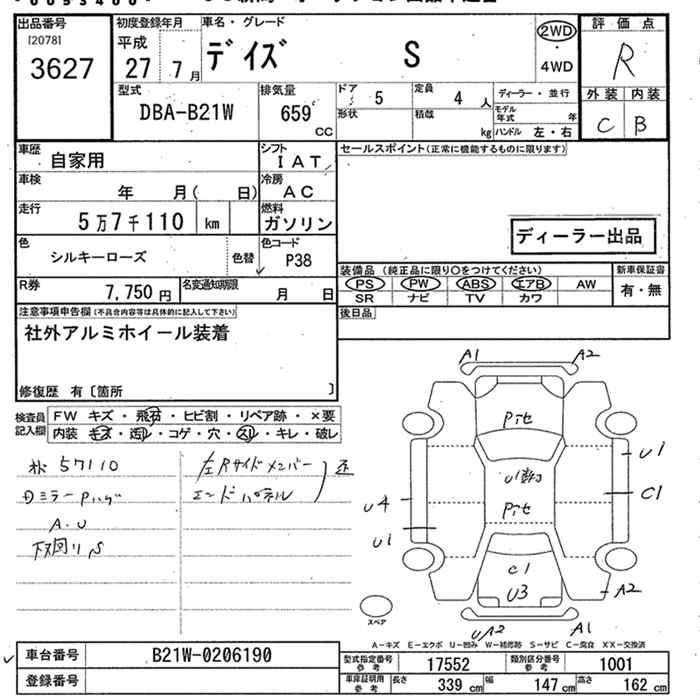 出品番号
[2078]
3627
初度登録年月
平成
27 7月
車名・グレード
デイズ S
2WD
・
4WD
評価点
R
外装 内装
C B
型式
DBA-B21W
排気量
659
CC
ドア 5
定員 4 人
形状
積載 kg
ディーラー・並行
モデル年式 年
ハンドル 左・右
車歴
自家用
シフト
IAT
セールスポイント(正常に機能するものに限ります)
車検
年 月( 日)
冷房
AC
走行
5万7千110 km
燃料
ガソリン
ディーラー出品
色
シルキーローズ
色替
色コード
P38
装備品(純正品に限り○をつけてください)
PS PW ABS エアB AW
SR ナビ TV カワ
新車保証書
有・無
R券
7,750円
名変通知期限
月 日
後日品
注意事項申告欄(不具合内容等は具体的に記入して下さい)
社外アルミホイール装着
修復歴 有〔箇所 〕
検査員記入欄
FW キズ・飛石・ヒビ割・リペア跡・×要
内装 キズ・汚レ・コゲ・穴・スレ・キレ・破レ
57110
左Rサイドメンバー
エンドパネル
A.U
A1 A2
U1
C1
U4
U1
C1
U3
A2
UA2 A1
スペア
A-キズ E-エクボ U-凹み W-補修跡 S-サビ C-腐食 XX-交換済
車台番号
B21W-0206190
登録番号
型式指定番号参考 17552
類別区分番号参考 1001
車庫証明用参考 長さ 339cm 幅 147cm 高さ 162cm